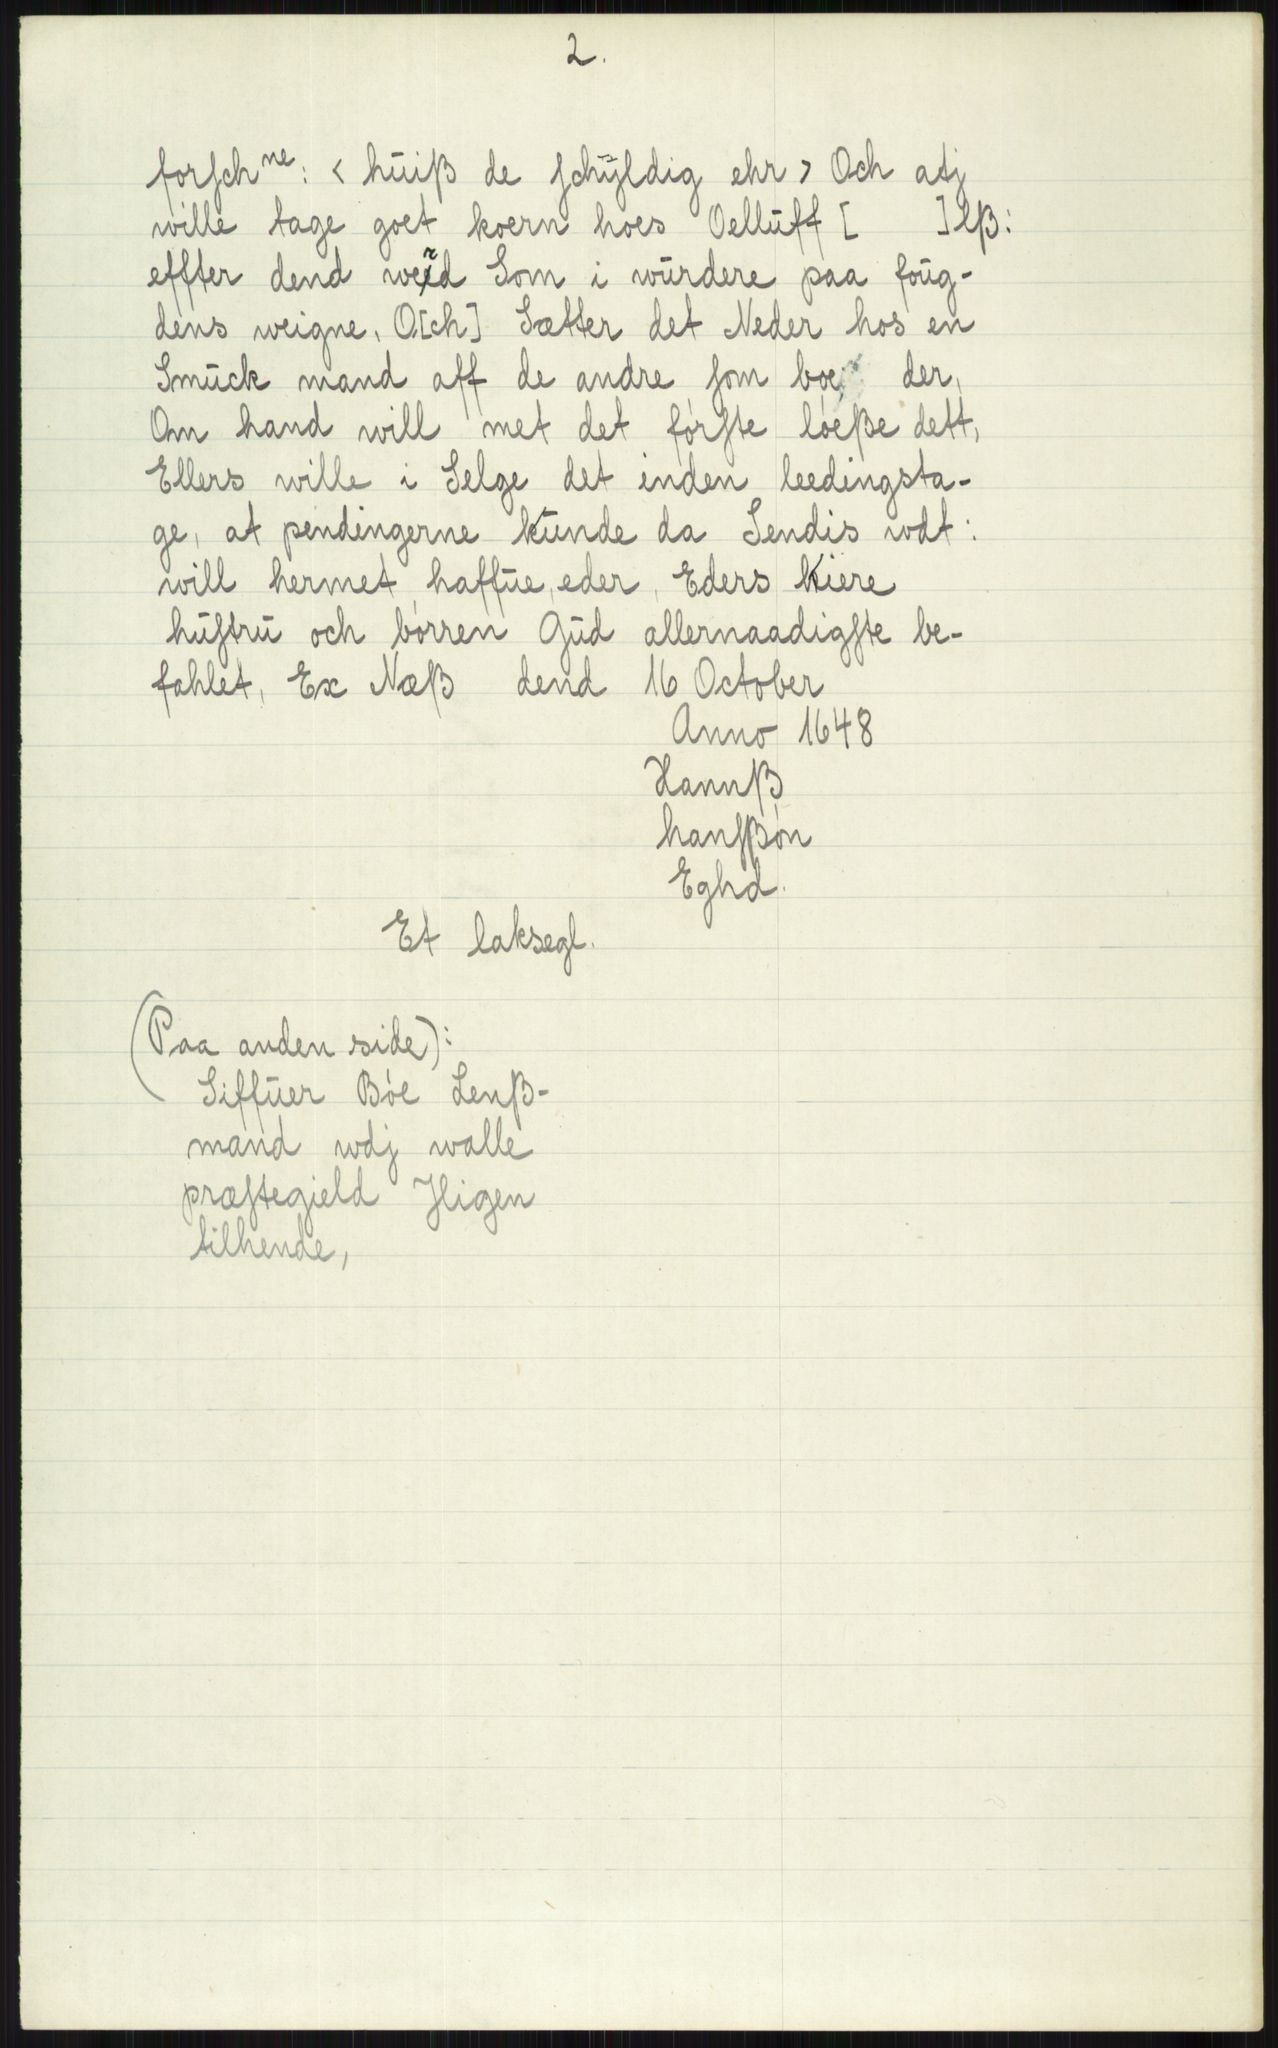 2.
forſchne: < hūiß de ſchÿldig ehr > Och atj
wille tage goet koern hoes Oellūff [ ] lß:
effter dend Som i wūrdere paa foūg-
dens weigne, O[ch] Sætter det Neder hos en
Smūck mand aff de andre ſom boe, der,
Om hand will met det førſte løeße dett,
Ellers wille i Selge det inden leedingsta-
ge, at pendingerne kūnde da Sendis wdt:
will hermet haffūe eder, Eders kiere
hūſtrū och børren Gūd allernaadigſte be-
fahlet, Ex Næß dend 16 October
Anno 1648
Hannß
hanſßøn
Eghd.
Et laksegl.
(Paa anden side):
Siffūer Bøe Lenß-
mand wdj walle
præſtegield Jligen
tilhende,